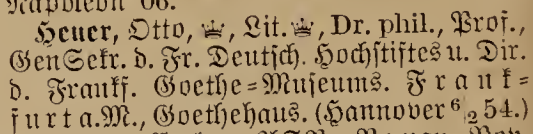 Heuer, Otto, ♕, Lit.♕, Dr. phil., Prof.,
GenSekr. d. Fr. Deutsch. Hochstiftes u. Dir.
d. Frankf. Goethe=Museums. Frank=
furt a.M., Goethehaus. (Hannover 6/2 54.)